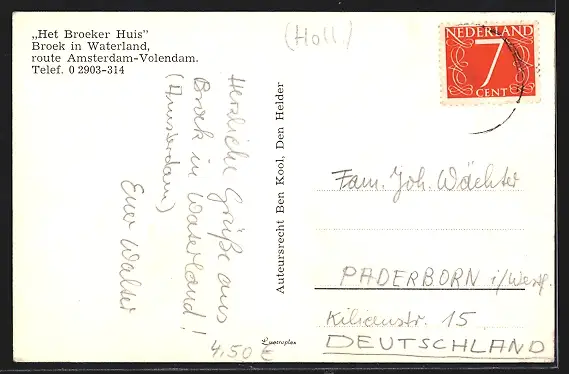 „Het Broeker Huis”
Broek in Waterland,
route Amsterdam-Volendam.
Telef. 0 2903-314
(Holl.)
NEDERLAND
7
CENT
Herzliche Grüße aus
Broek in Waterland!
(Amsterdam)
Euer Walter
Auteursrecht Ben Kool, Den Helder
Fam. Joh. Wächter
PADERBORN i/Westf.
Kilianstr. 15
DEUTSCHLAND
4,50 €
Luxtraplex